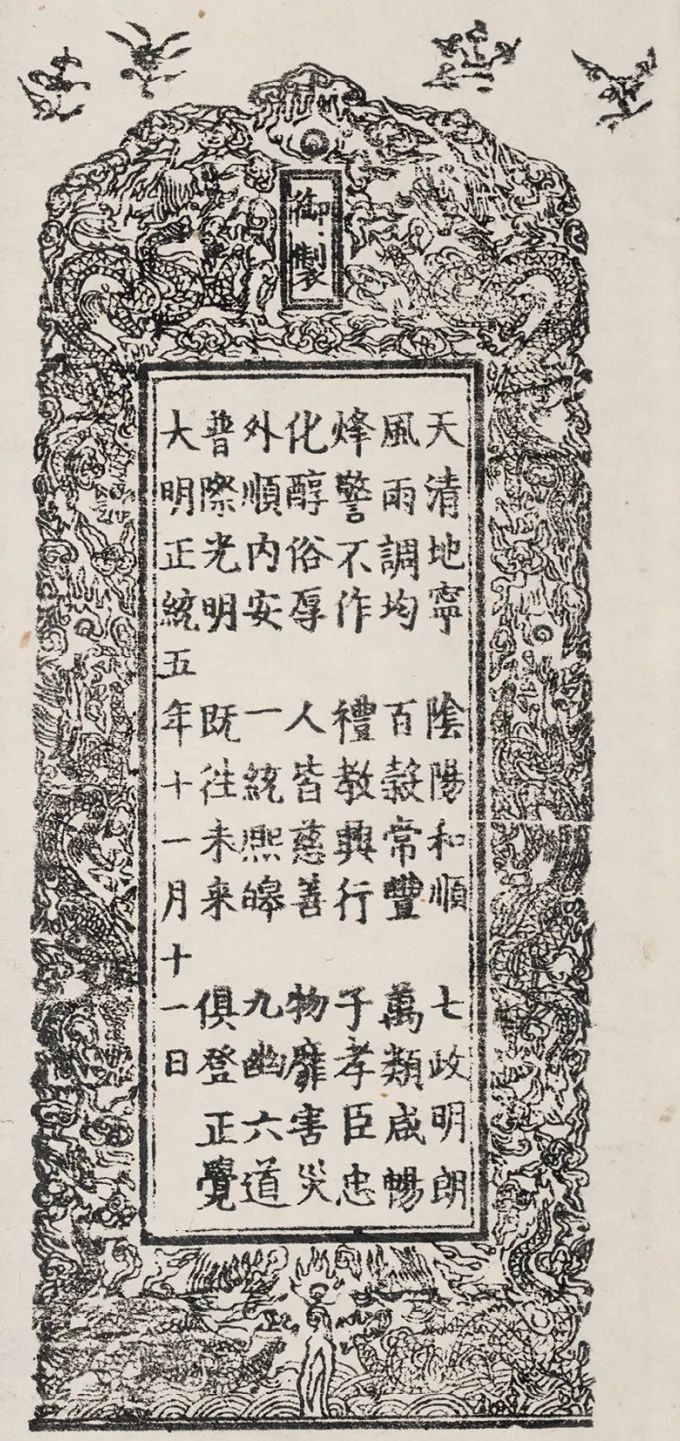 御製
天清地寧 陰陽和順 七政明朗
風雨調均 百穀常豐 萬類咸暢
烽警不作 禮教興行 子孝臣忠
化醇俗厚 人皆慈善 物靡害災
外順內安 一統熙皞 九幽六道
普際光明 既往未来 俱登正覺
大明正統五年十一月十一日